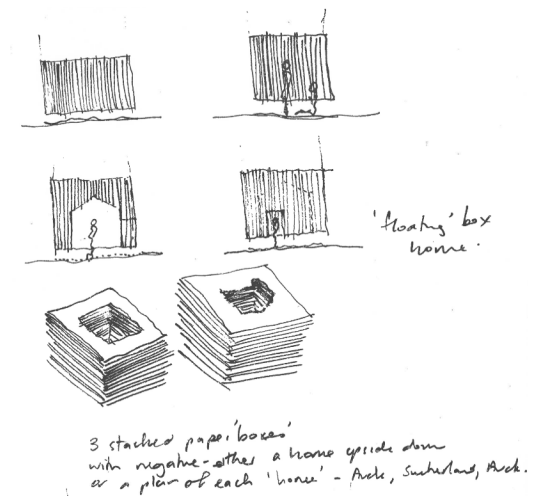 'floating' box
home.
3 stacked paper 'boxes'
with negative - either a home upside down
or a plan of each 'home' - Auck, Sutherland, Auck.